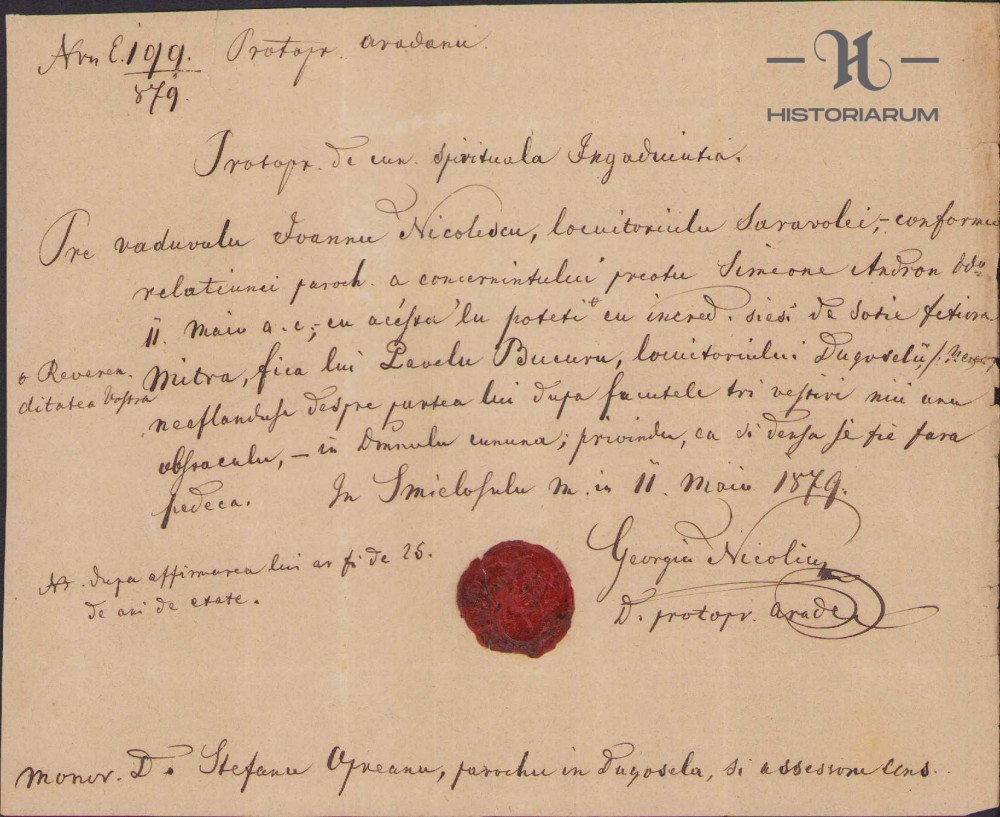 Nru E. 199. Protopr. aradanu.
879.
HISTORIARUM
Protopr. de cun. spirituala Ingaduintia.
Pre vaduvulu Ioannu Nicolescu, locuitoriulu Saravolei, - conformu
relatiunei paroch. a concernintelui preotu Simeone Andron ddto
11. Maiu a. c., cu acésta 'lu poteti cu incred. siesi de sotie fetiora
Mitra, fica lui Pavelu Bucuru, locuitoriului Dugoselii,
o Reveren.
ditatea Vostra
neaflanduse despre partea lui dupa facutele tri vestiri nici unu
obstaculu, - in Dmnulu cununa; privindu, ca si densa se fie fara
pedeca. In Smiclosulu m. in 11. Maiu 1879.
Georgiu Nicoliciu
D. protopr. arade
Nt. dupa affirmarea lui ar fi de 25.
de ani de etate.
Monor. D. Stefanu Opreanu, parochu in Dugosela, si assessore cons.